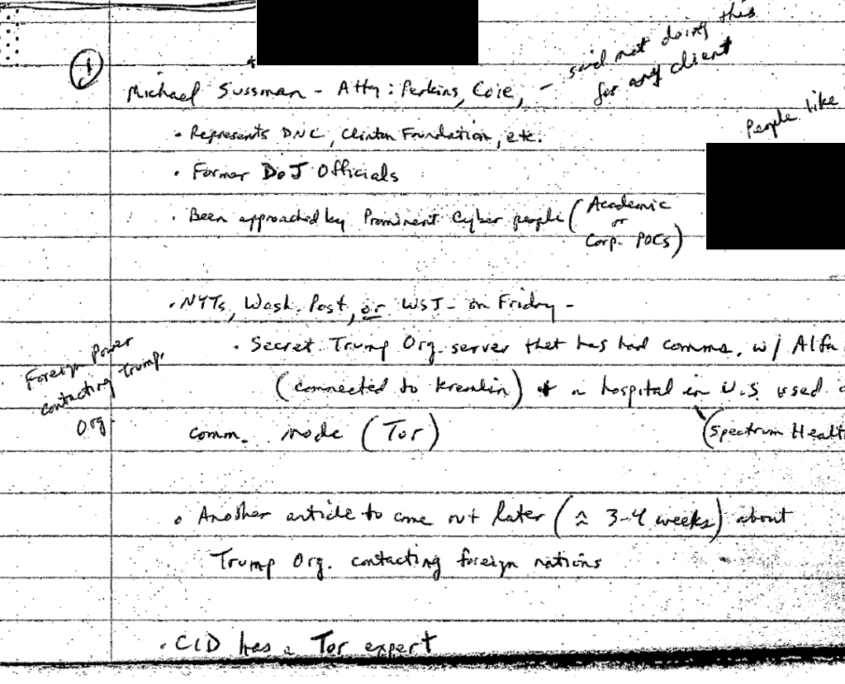 1
* Michael Sussman - Atty: Perkins, Coie, - said not doing this
for any client
People like
• Represents DNC, Clinton Foundation, etc.
• Former DoJ Officials
• Been approached by Prominent Cyber people (Academic
or
Corp. POCs)
• NYTs, Wash. Post, or WSJ - on Friday -
• Secret Trump Org. server that has had comms. w/ Alfa
Foreign Power
contacting Trump.
Org
(connected to Kremlin) + a hospital in U.S used
(Spectrum Healt
comm. node (Tor)
• Another article to come out later (≈ 3-4 weeks) about
Trump Org. contacting foreign nations
• CID has a Tor expert